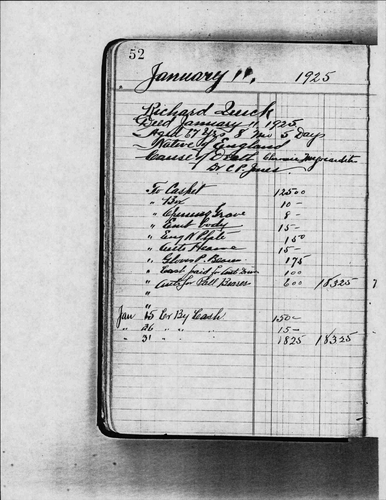 52
January 11, 1925
Richard Quick
Died January 1925
Aged 67 yrs 8 mo 5 Days
Native of England
Cause of Death Chronic Myocarditis
Dr C P Jones
To Casket 125 00
" Box 10 -
" Opening Grave 8 -
" Emb body 15 -
" Eng N Plate 1 50
" Auto Hearse 15 -
" Gloves P. Bearers 1 75
" Cash paid for 1 00
" Auto for Pall Bearers 6 00 183 25
"
"
Jan 15 Cr By Cash 150 -
" 26 " " 15 -
" 31 " 18 25 183 25